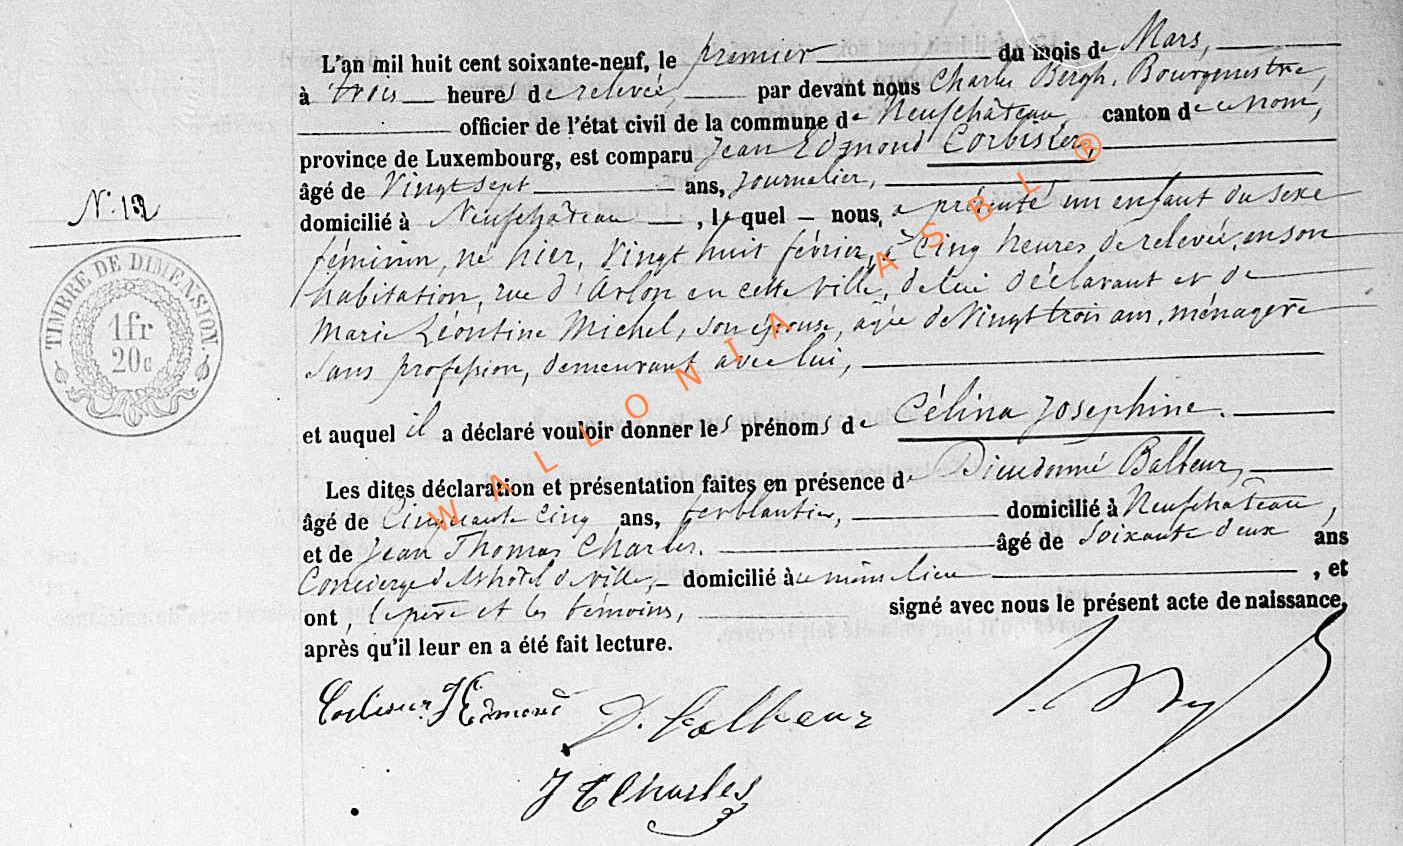 L'an mil huit cent soixante-neuf, le premier du mois de Mars,
à trois heures de relevée, par devant nous Charles Bergh, Bourgmestre,
officier de l'état civil de la commune de Neufchâteau, canton de ce nom,
province de Luxembourg, est comparu Jean Edmond Corbisier,
âgé de Vingt sept ans, journalier,
domicilié à Neufchâteau, lequel nous a présenté un enfant du sexe
féminin, né hier, Vingt huit février, à Cinq heures de relevée, en son
habitation, rue d'Arlon en cette ville, de lui déclarant et de
Marie Léontine Michel, son épouse, agée de Vingt trois ans, ménagère
sans profession, demeurant avec lui,
et auquel il a déclaré vouloir donner les prénoms de Célina Josephine.
Les dites déclaration et présentation faites en présence de Dieudonné Balteur,
âgé de Cinquante Cinq ans, ferblantier, domicilié à Neufchâteau,
et de Jean Thomas Charles. âgé de Soixante deux ans
Concierge de l'hôtel de ville, domicilié à ce même lieu, et
ont, le père et les témoins, signé avec nous le présent acte de naissance,
après qu'il leur en a été fait lecture.
N. 12
TIMBRE DE DIMENSION.
1fr
20c
Corbisier J Edmond D. Balteur
J T Charles
WALLONIA ASBL ®